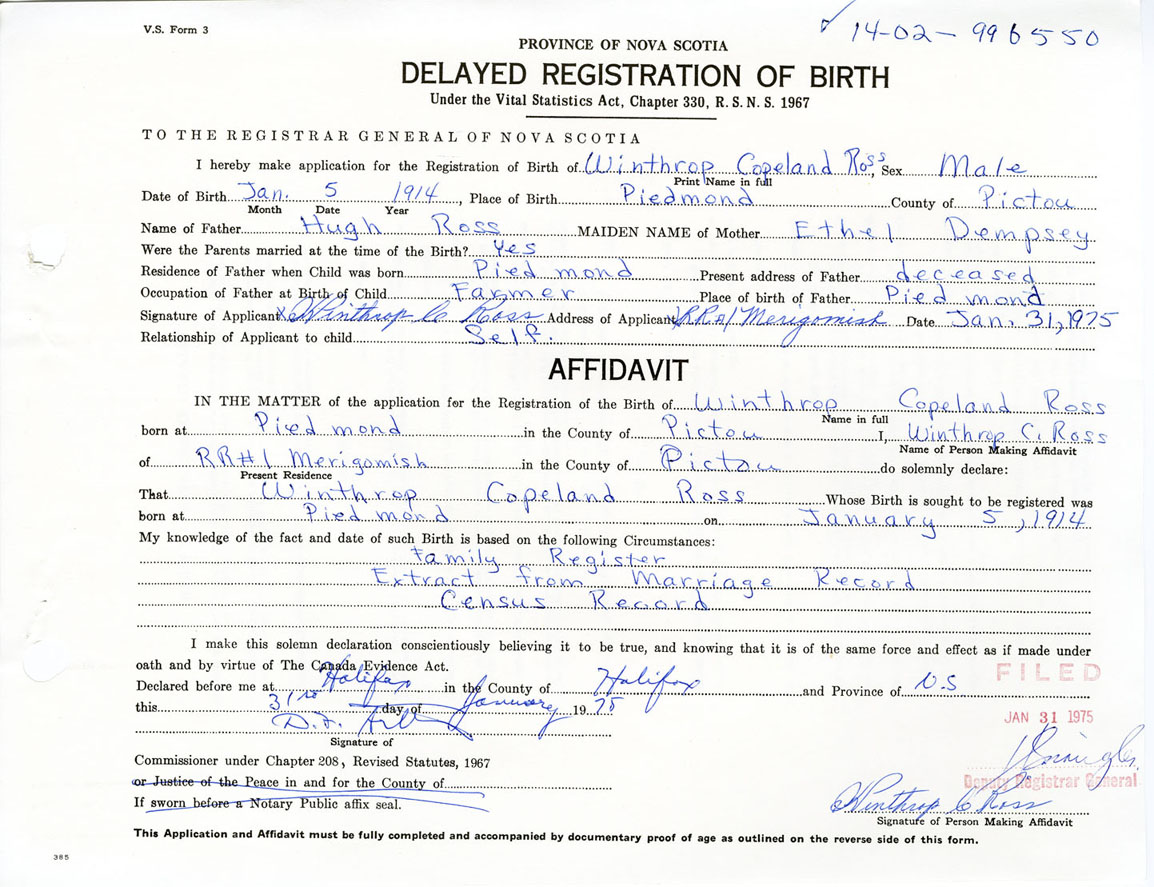 V.S. Form 3
✓ 14-02-996550
PROVINCE OF NOVA SCOTIA
DELAYED REGISTRATION OF BIRTH
Under the Vital Statistics Act, Chapter 330, R. S. N. S. 1967
TO THE REGISTRAR GENERAL OF NOVA SCOTIA
I hereby make application for the Registration of Birth of Winthrop Copeland Ross, Sex Male
Print Name in full
Date of Birth Jan. 5 1914, Place of Birth Piedmond County of Pictou
Month Date Year
Name of Father Hugh Ross MAIDEN NAME of Mother Ethel Dempsey
Were the Parents married at the time of the Birth? Yes
Residence of Father when Child was born Piedmond Present address of Father deceased
Occupation of Father at Birth of Child Farmer Place of birth of Father Piedmond
Signature of Applicant X Winthrop C Ross Address of Applicant RR#1 Merigomish Date Jan. 31, 1975
Relationship of Applicant to child Self.
AFFIDAVIT
IN THE MATTER of the application for the Registration of the Birth of Winthrop Copeland Ross
Name in full
born at Piedmond in the County of Pictou I, Winthrop C. Ross
Name of Person Making Affidavit
of RR#1 Merigomish in the County of Pictou do solemnly declare:
Present Residence
That Winthrop Copeland Ross Whose Birth is sought to be registered was
born at Piedmond on January 5, 1914
My knowledge of the fact and date of such Birth is based on the following Circumstances:
Family Register
Extract from Marriage Record
Census Record
I make this solemn declaration conscientiously believing it to be true, and knowing that it is of the same force and effect as if made under
oath and by virtue of The Canada Evidence Act.
FILED
Declared before me at Halifax in the County of Halifax and Province of N.S
this 31st day of January 1975
JAN 31 1975
D. F.
Signature of
Commissioner under Chapter 208, Revised Statutes, 1967
or Justice of the Peace in and for the County of
Deputy Registrar General
If sworn before a Notary Public affix seal.
Winthrop C Ross
Signature of Person Making Affidavit
This Application and Affidavit must be fully completed and accompanied by documentary proof of age as outlined on the reverse side of this form.
385